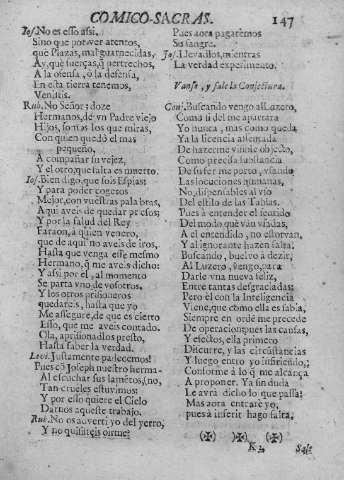 COMICO-SACRAS. 147
Jos. No es esso assi.
Sino que por ver atentos,
que Plazas, mal guarnecidas,
Ay, que fuerças, ò pertrechos,
A la ofensa, ò la defensa,
En esta tierra tenemos,
Venistis.
Rub. No Señor; doze
Hermanos, de vn Padre viejo
Hijos, somos los que miras,
Con quien quedò el mas
pequeño,
A compañar su vejez,
Y el otro, que falta es muerto.
Jos. Bien digo, que sois Espias;
Y para poder cogeros
Mejor, con vuestras palabras,
Aqui aveis de quedar presos;
Y por la salud del Rey
Faraon, à quien venero,
que de aqui no aveis de iros,
Hasta que venga esse mesmo
Hermano, q̃ me aveis dicho:
Y assi por el, al momento
Se parta vno de vosotros,
Y los otros prisioneros
quedareis, hasta que yo
Me assegure, de que es cierto
Esso, que me aveis contado.
Ola, aprisionadlos presto,
Hasta saber la verdad.
Levi. Justamente padecemos!
Pues cõ Joseph nuestro herma-
Al escuchar sus lamẽtos, (no,
Tan crueles estuvimos:
Y por esso quiere el Cielo
Darnos aqueste trabajo.
Rub. No os adverti yo del yerro,
Y no quisisteis oirme?
Pues aora pagaremos
Su sangre.
Jos. Llevadlos, mientras
La verdad experimento.
Vanse, y sale la Conjectura.
Conj. Buscando vengo al Luzero,
Como si del me apartara
Yo nunca, mas como queda
Ya la licencia assentada
De hazerme vinole objecto,
Como precisa substancia
De ser me porto, vsando
Las locuciones humanas,
No dispensables al vso
Del estilo de las Tablas.
Pues à entender el sentido
Del modo que van vsadas,
A el entendido, no estorvan,
Y al ignorante hazen falta.
Buscando, buelvo à dezir,
Al Luzero, vengo, para
Darle vna nueva feliz,
Entre tantas desgraciadas;
Pero èl con la Inteligencia
Viene, que como ella es sabia,
Siempre en ordẽ me precede
De operacion pues las causas,
Y efectos, ella primero
Discurre, y las circũstancias
Y luego entro yo infiriendo,
Conforme à lo q̃ me alcança
A proponer. Ya sin duda
Le avrà dicho lo que passa:
Mas aora entrarè yo,
pues à inferir hago falta.
K 2 Sale